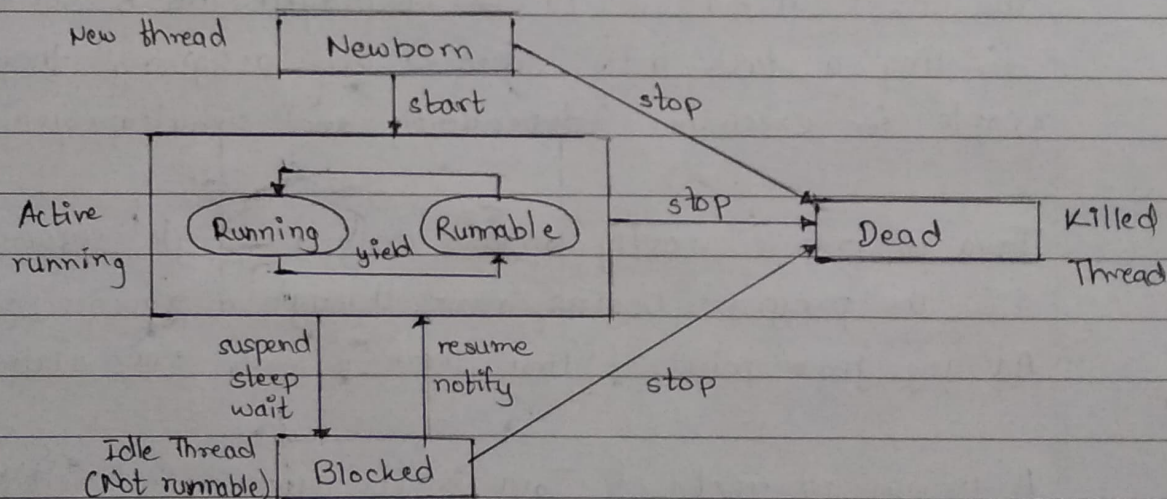 New thread
Newborn
start
stop
Active
running
Running
yield
Runnable
stop
Dead
Killed
Thread
suspend
sleep
wait
resume
notify
stop
Idle Thread
(Not runnable)
Blocked